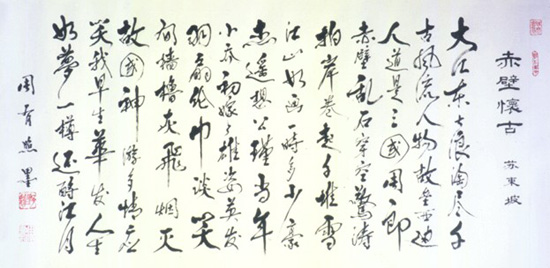 赤壁懷古
苏東坡
大江东去浪淘尽千
古風流人物故壘西边
人道是三國周郎
赤壁乱石穿空驚涛
拍岸卷起千堆雪
江山如画一時多少豪
杰遥想公瑾当年
小乔初嫁了雄姿英发
羽扇纶巾谈笑
间樯橹灰飛烟灭
故國神游多情应
笑我早生華发人生
如夢一樽还酹江月
周 墨